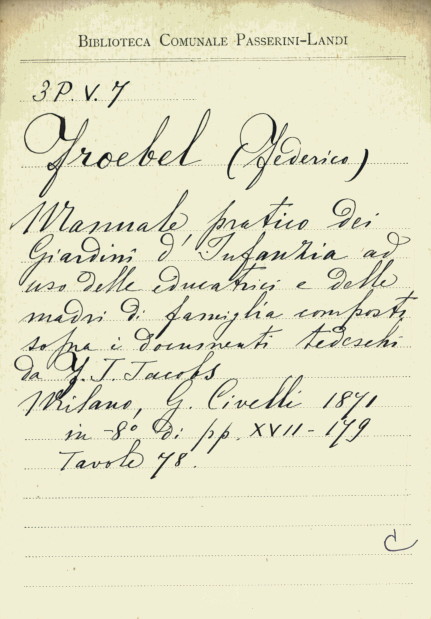 BIBLIOTECA COMUNALE PASSERINI-LANDI
3 P. V. 7
Froebel (Federico)
Manuale pratico dei
Giardini d'Infanzia ad
uso delle educatrici e delle
madri di famiglia composti
sopra i documenti tedeschi
da J. F. Jacobs
Milano, G. Civelli 1871
in -8° di pp. XVII-179
Tavole 78.
C